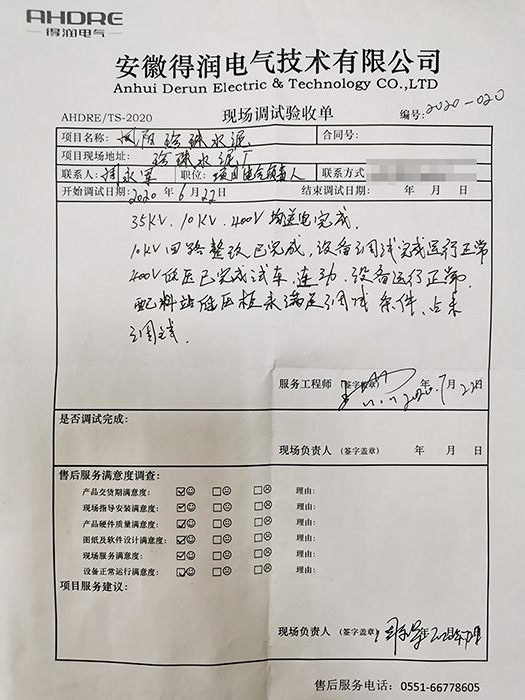 AHDRE
得润电气
安徽得润电气技术有限公司
Anhui Derun Electric & Technology CO.,LTD
AHDRE/TS-2020 现场调试验收单 编号:2020-020
项目名称: 凤阳珍珠水泥 合同号:
项目现场地址: 珍珠水泥厂
联系人: 职位: 项目电气负责人 联系方式
开始调试日期: 2020年6月22日 结束调试日期: 年 月 日
35KV. 10KV. 400V 均送电完成.
10KV回路整改已完成,设备调试完成运行正常
400V低压已完成试车,连动,设备运行正常.
配料站低压柜未满足调试条件,点未
调试.
服务工程师 (签字盖章) 2020年7月22日
是否调试完成:
现场负责人 (签字盖章) 年 月 日
售后服务满意度调查:
产品交货期满意度: 理由:
现场指导安装满意度: 理由:
产品硬件质量满意度: 理由:
图纸及软件设计满意度: 理由:
现场服务满意度: 理由:
设备正常运行满意度: 理由:
项目服务建议:
现场负责人 (签字盖章)
售后服务电话: 0551-66778605